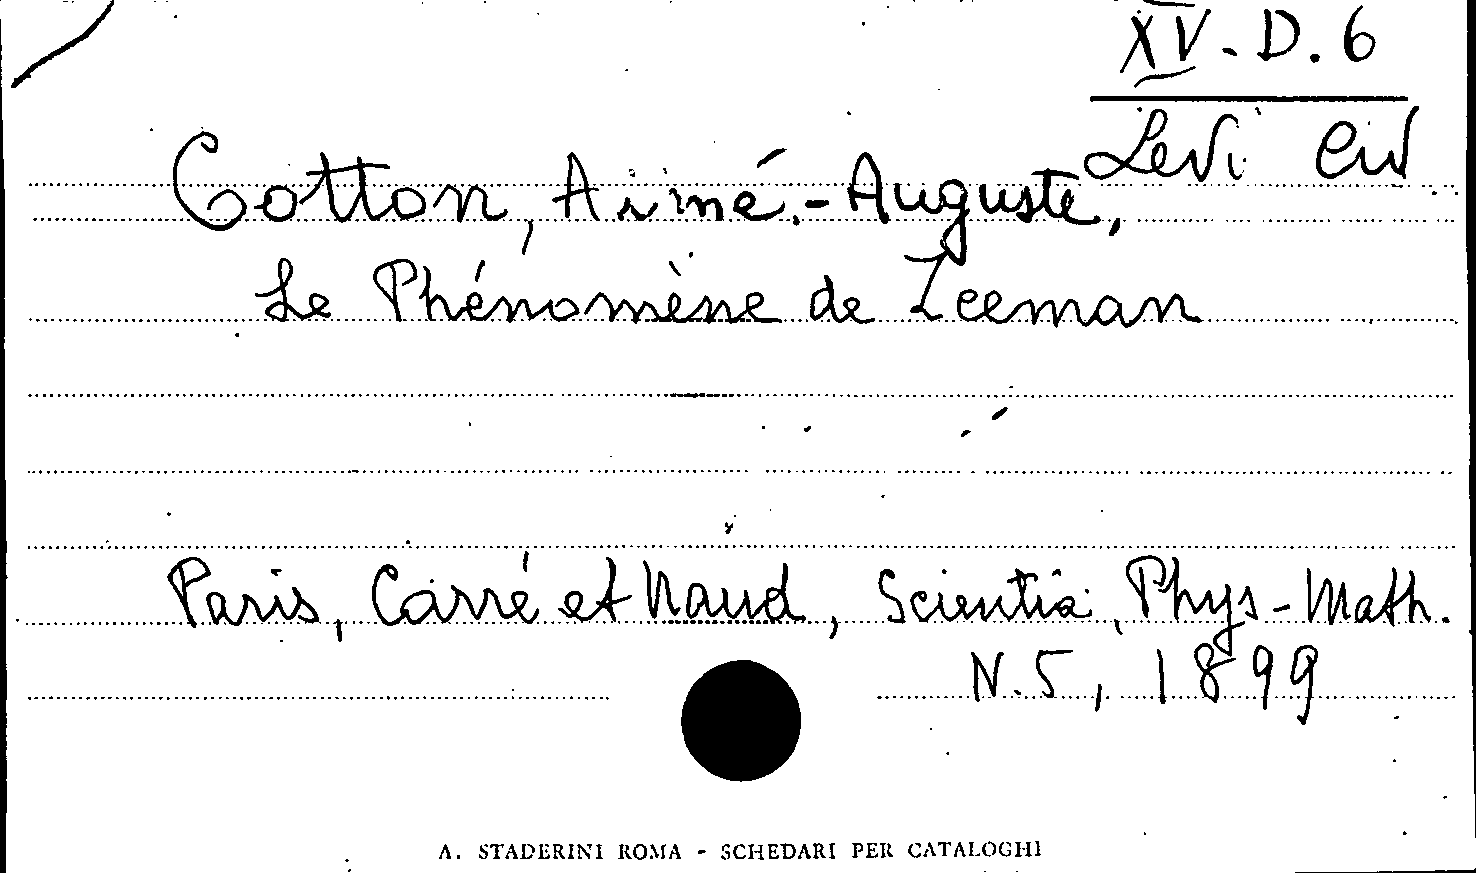 XV-D.6
Levi Civ
Cotton, Aimé.-Auguste,
Le Phénomène de Zeeman
Paris, Carré et Naud, Scientia, Phys-Math.
N.5, 1899
A. STADERINI ROMA - SCHEDARI PER CATALOGHI